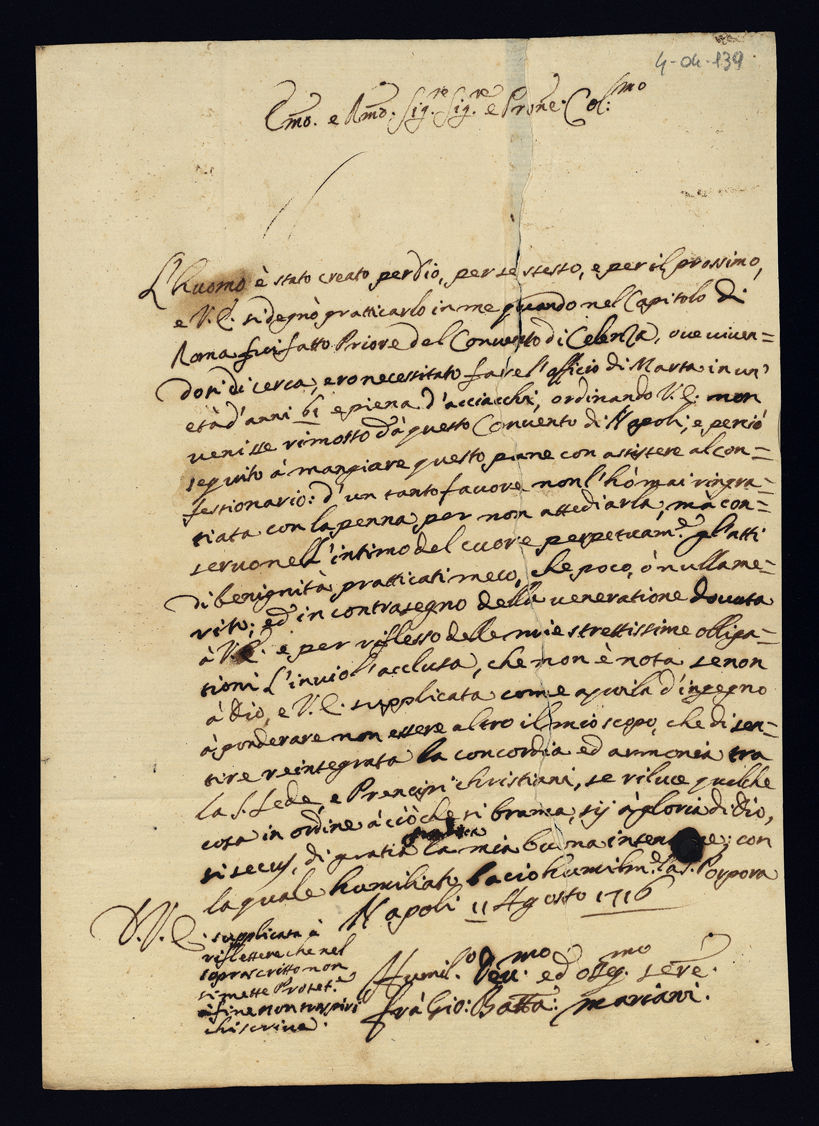 4-04-139
Emo. e Rmo: Sig.re Sig.re e Prone Col:mo
L'huomo è stato creato per Dio, per se stesso, e per il prossimo,
e V.E. si degnò pratticarlo in me quando nel Capitolo di
Roma fui fatto Priore del Convento di Celenza, ove viven=
dosi di cerca, ero necessitato fare l'officio di Marta in un'
età d'anni 61 e piena d'acciacchi, ordinando V.E. non
venisse rimosso da questo Convento di Napoli; e perciò
seguito à mangiare questo pane con assistere al con=
fessionario: d'un tanto favore non l'hò mai ringra=
tiata con la penna per non attediarla, mà con=
servo nell'intimo del cuore perpetuam.e gl'atti
di benignità pratticati meco, che poco, ò nulla me=
rito; ed in contrasegno della veneratione dovuta
à V.E. e per riflesso delle mie strettissime obliga=
tioni L'invio l'acclusa, che non è nota se non
à Dio, e V.E. supplicata come aquila d'ingegno
à ponderare non essere altro il mio scopo, che di sen=
tire reintegrata la concordia ed armonia tra
la S. Sede, e Prencipi christiani, se riluce qualche
cosa in ordine à ciò che si brama, sij à gloria di Dio,
si secus, di gratia la mia buona; con
la quale humiliati bacio humilm.e la S. Porpora
Napoli 11 Agosto 1716
V.E. supplicata à
riflettere che nel
soprascritto non
si mette
à fine non traspiri
chi scrive.
Humil.o Dev.mo ed oblig.mo serv.e
frà Gio: Batta: Mariani.